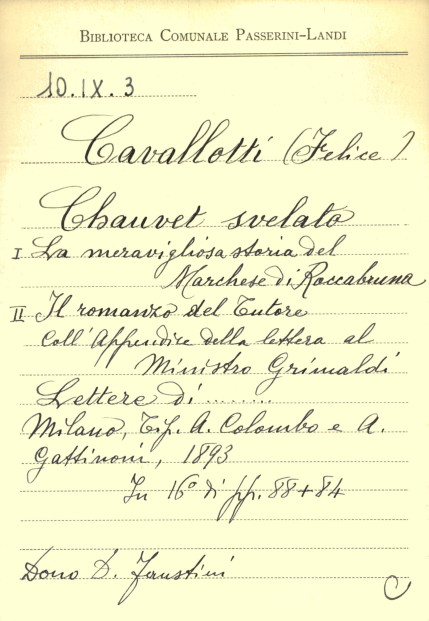 BIBLIOTECA COMUNALE PASSERINI-LANDI
10.IX.3
Cavallotti (Felice)
Chauvet svelato
I La meravigliosa storia del
Marchese di Roccabruna
II Il romanzo del Tutore
coll'Appendice della lettera al
Ministro Grimaldi
Lettere di ........
Milano, Tip. A. Colombo e A.
Gattinoni, 1893
In 16° di pp. 88+84
Dono D. Faustini
C